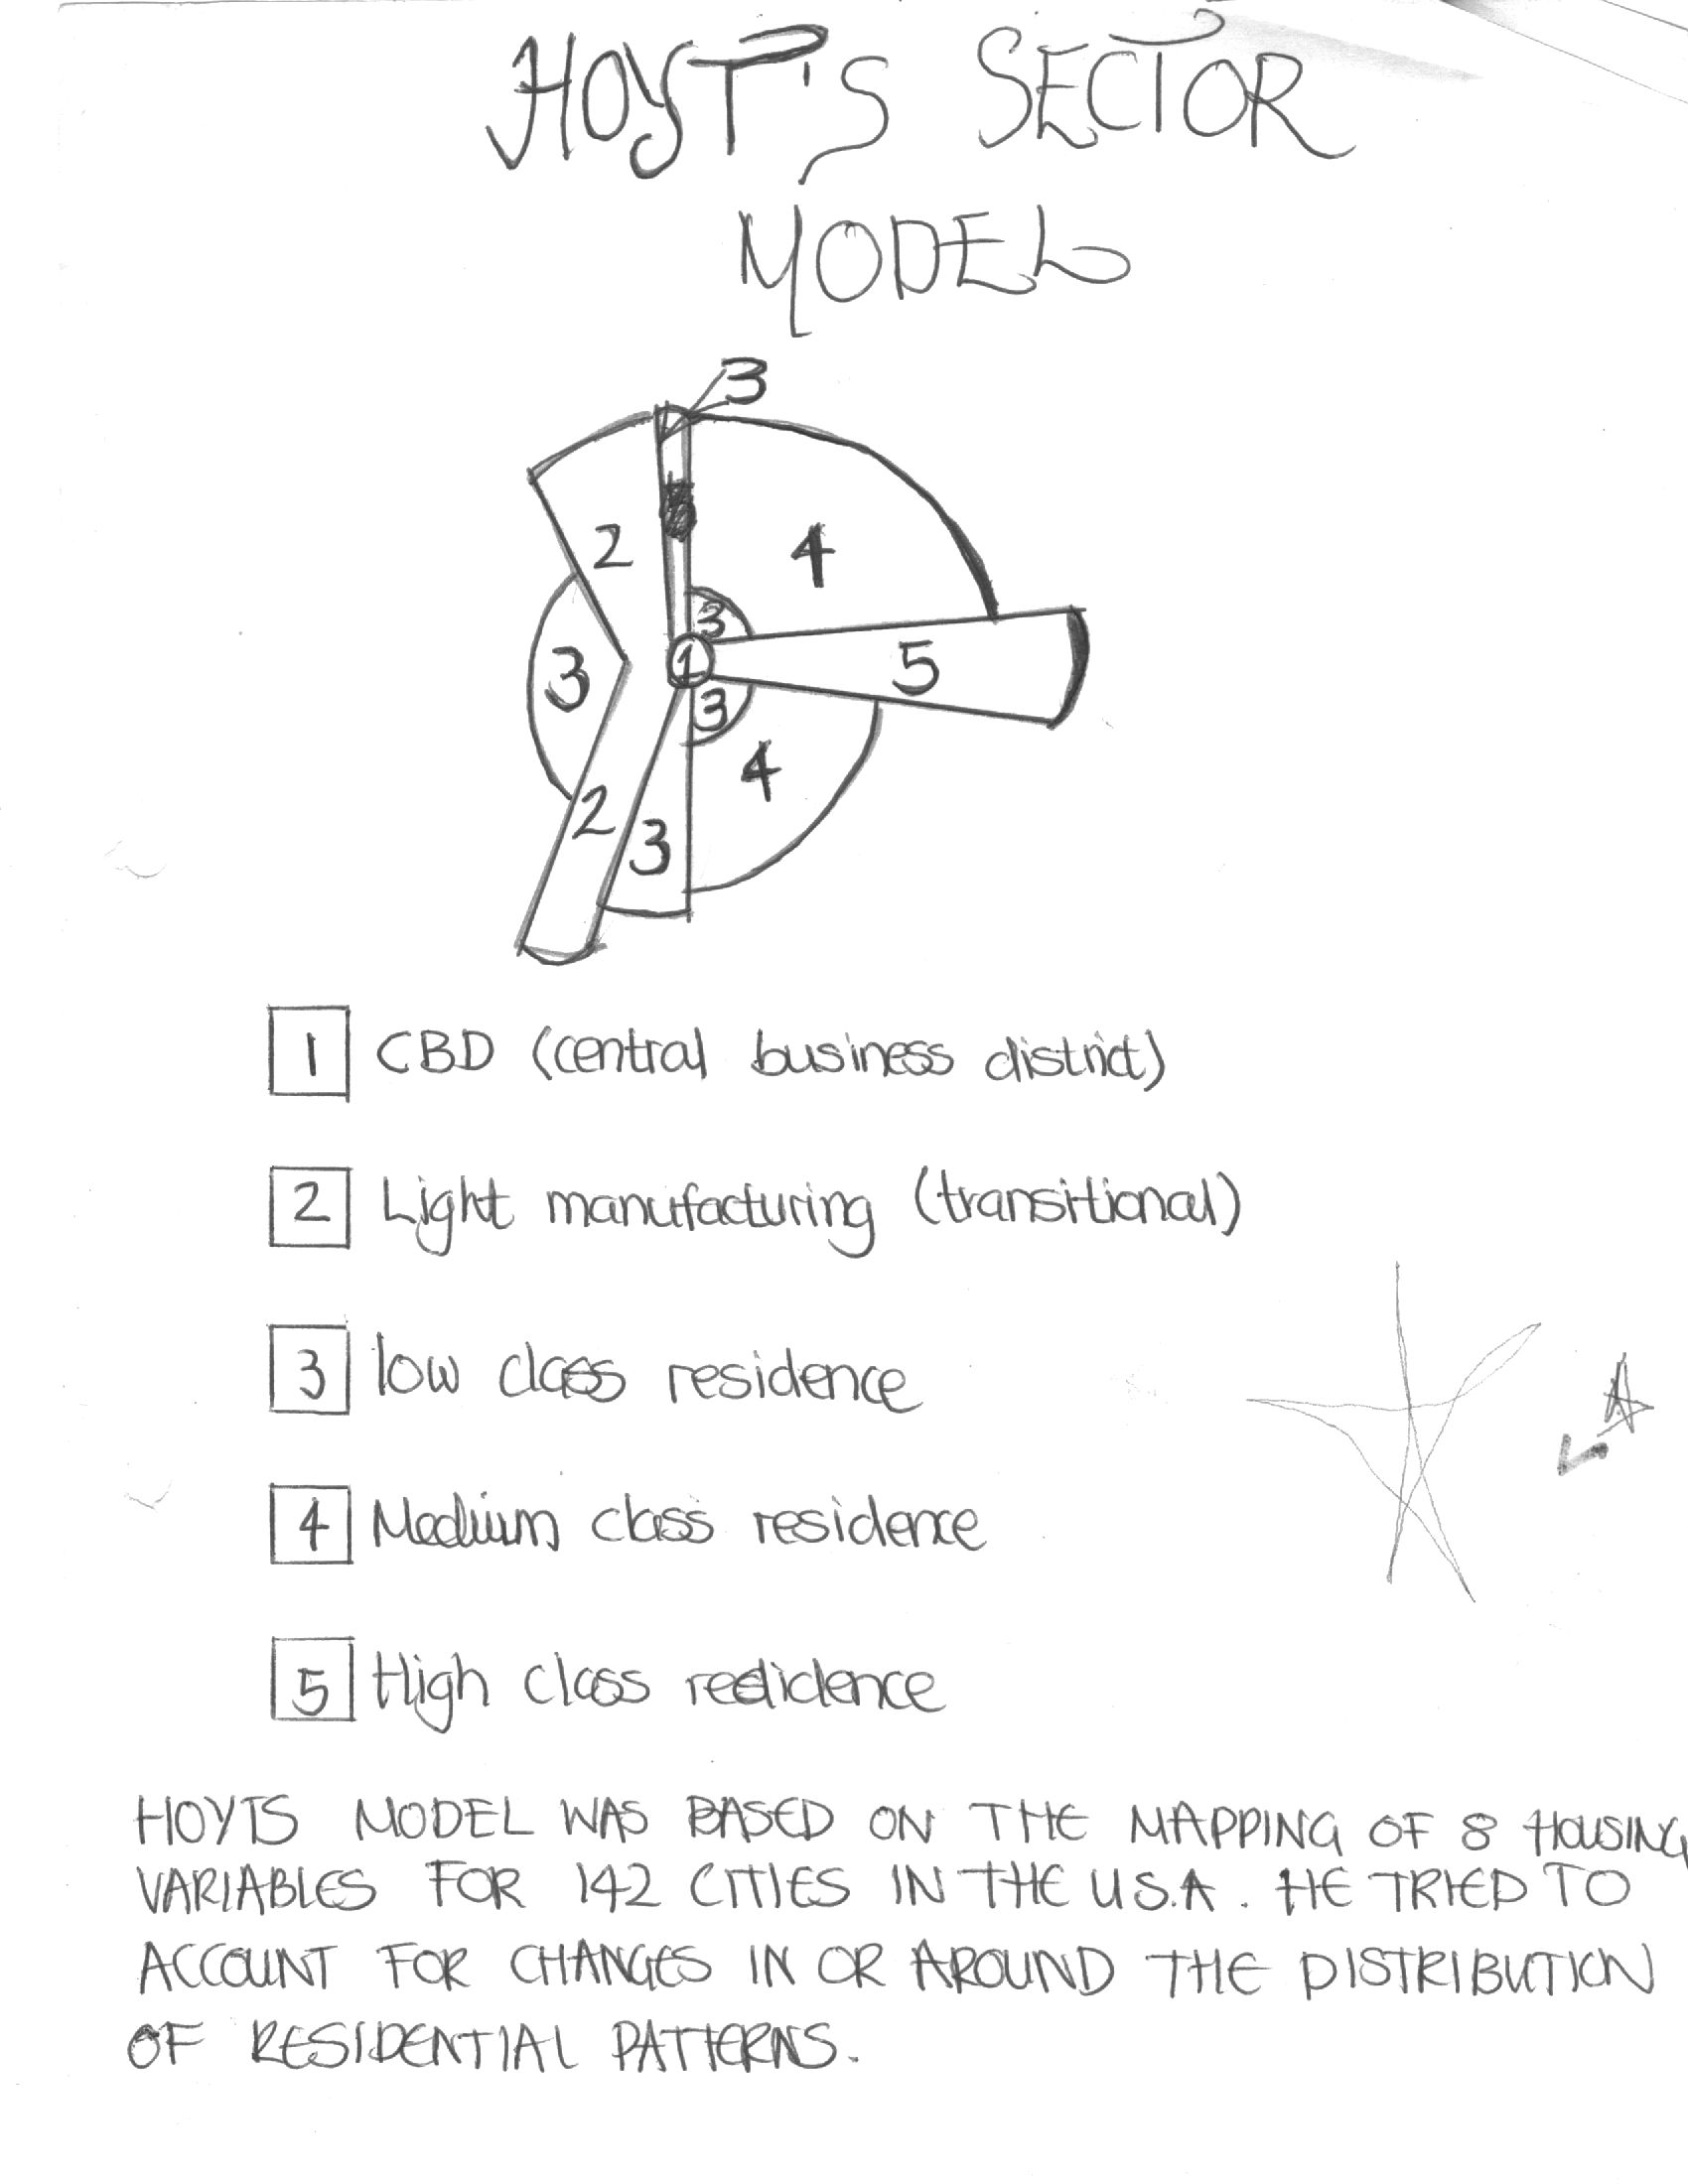 HOYT'S SECTOR
MODEL
3
2
4
3
1
5
3
3
4
2
3
1 CBD (central business district)
2 Light manufacturing (transitional)
3 low class residence
4 Medium class residence
5 High class redidence
HOYTS MODEL WAS BASED ON THE MAPPING OF 8 HOUSING
VARIABLES FOR 142 CITIES IN THE U.S.A. HE TRIED TO
ACCOUNT FOR CHANGES IN OR AROUND THE DISTRIBUTION
OF RESIDENTIAL PATTERNS.